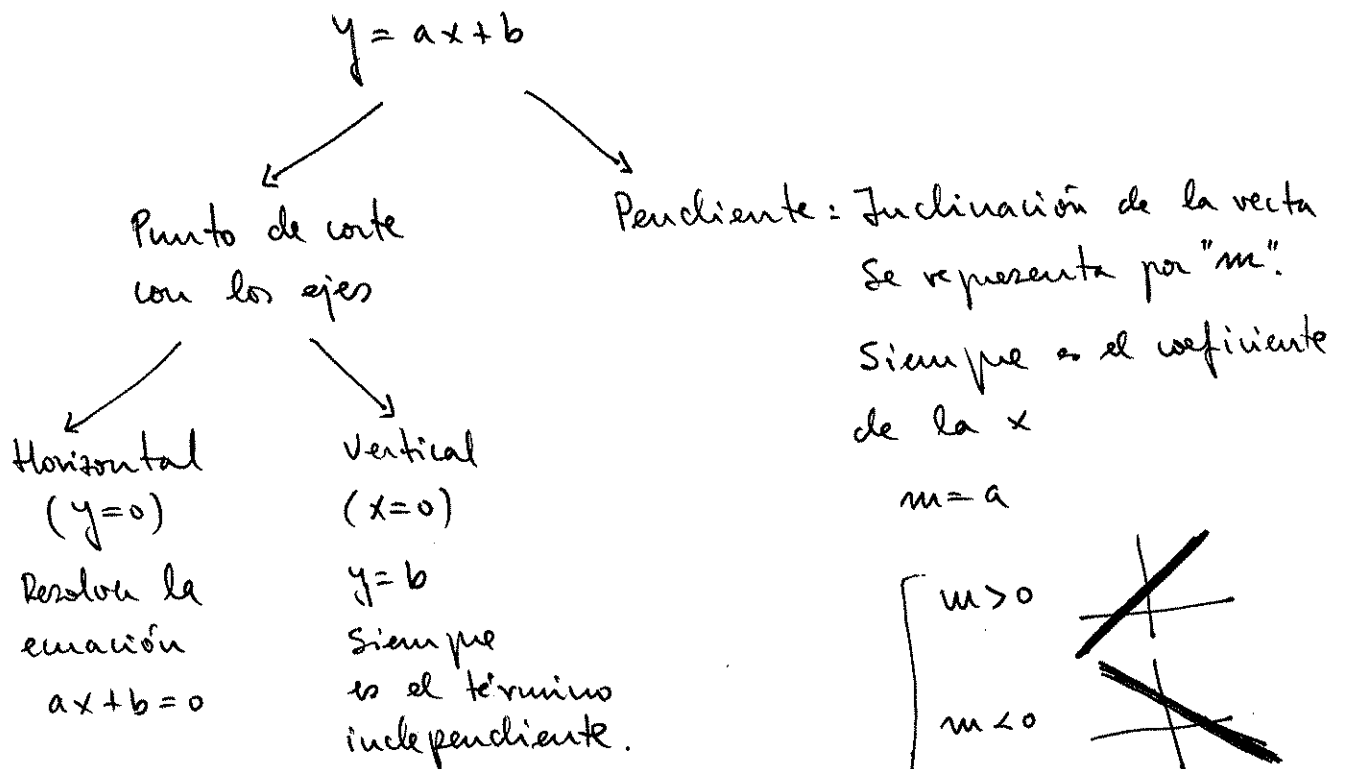 y = ax + b
Punto de corte
con los ejes
Horizontal
(y=0)
Resolver la
ecuación
ax + b = 0
Vertical
(x=0)
y = b
Siempre
es el término
independiente.
Pendiente: Inclinación de la recta
Se representa por "m".
Siempre es el coeficiente
de la x
m = a
m > 0
m < 0